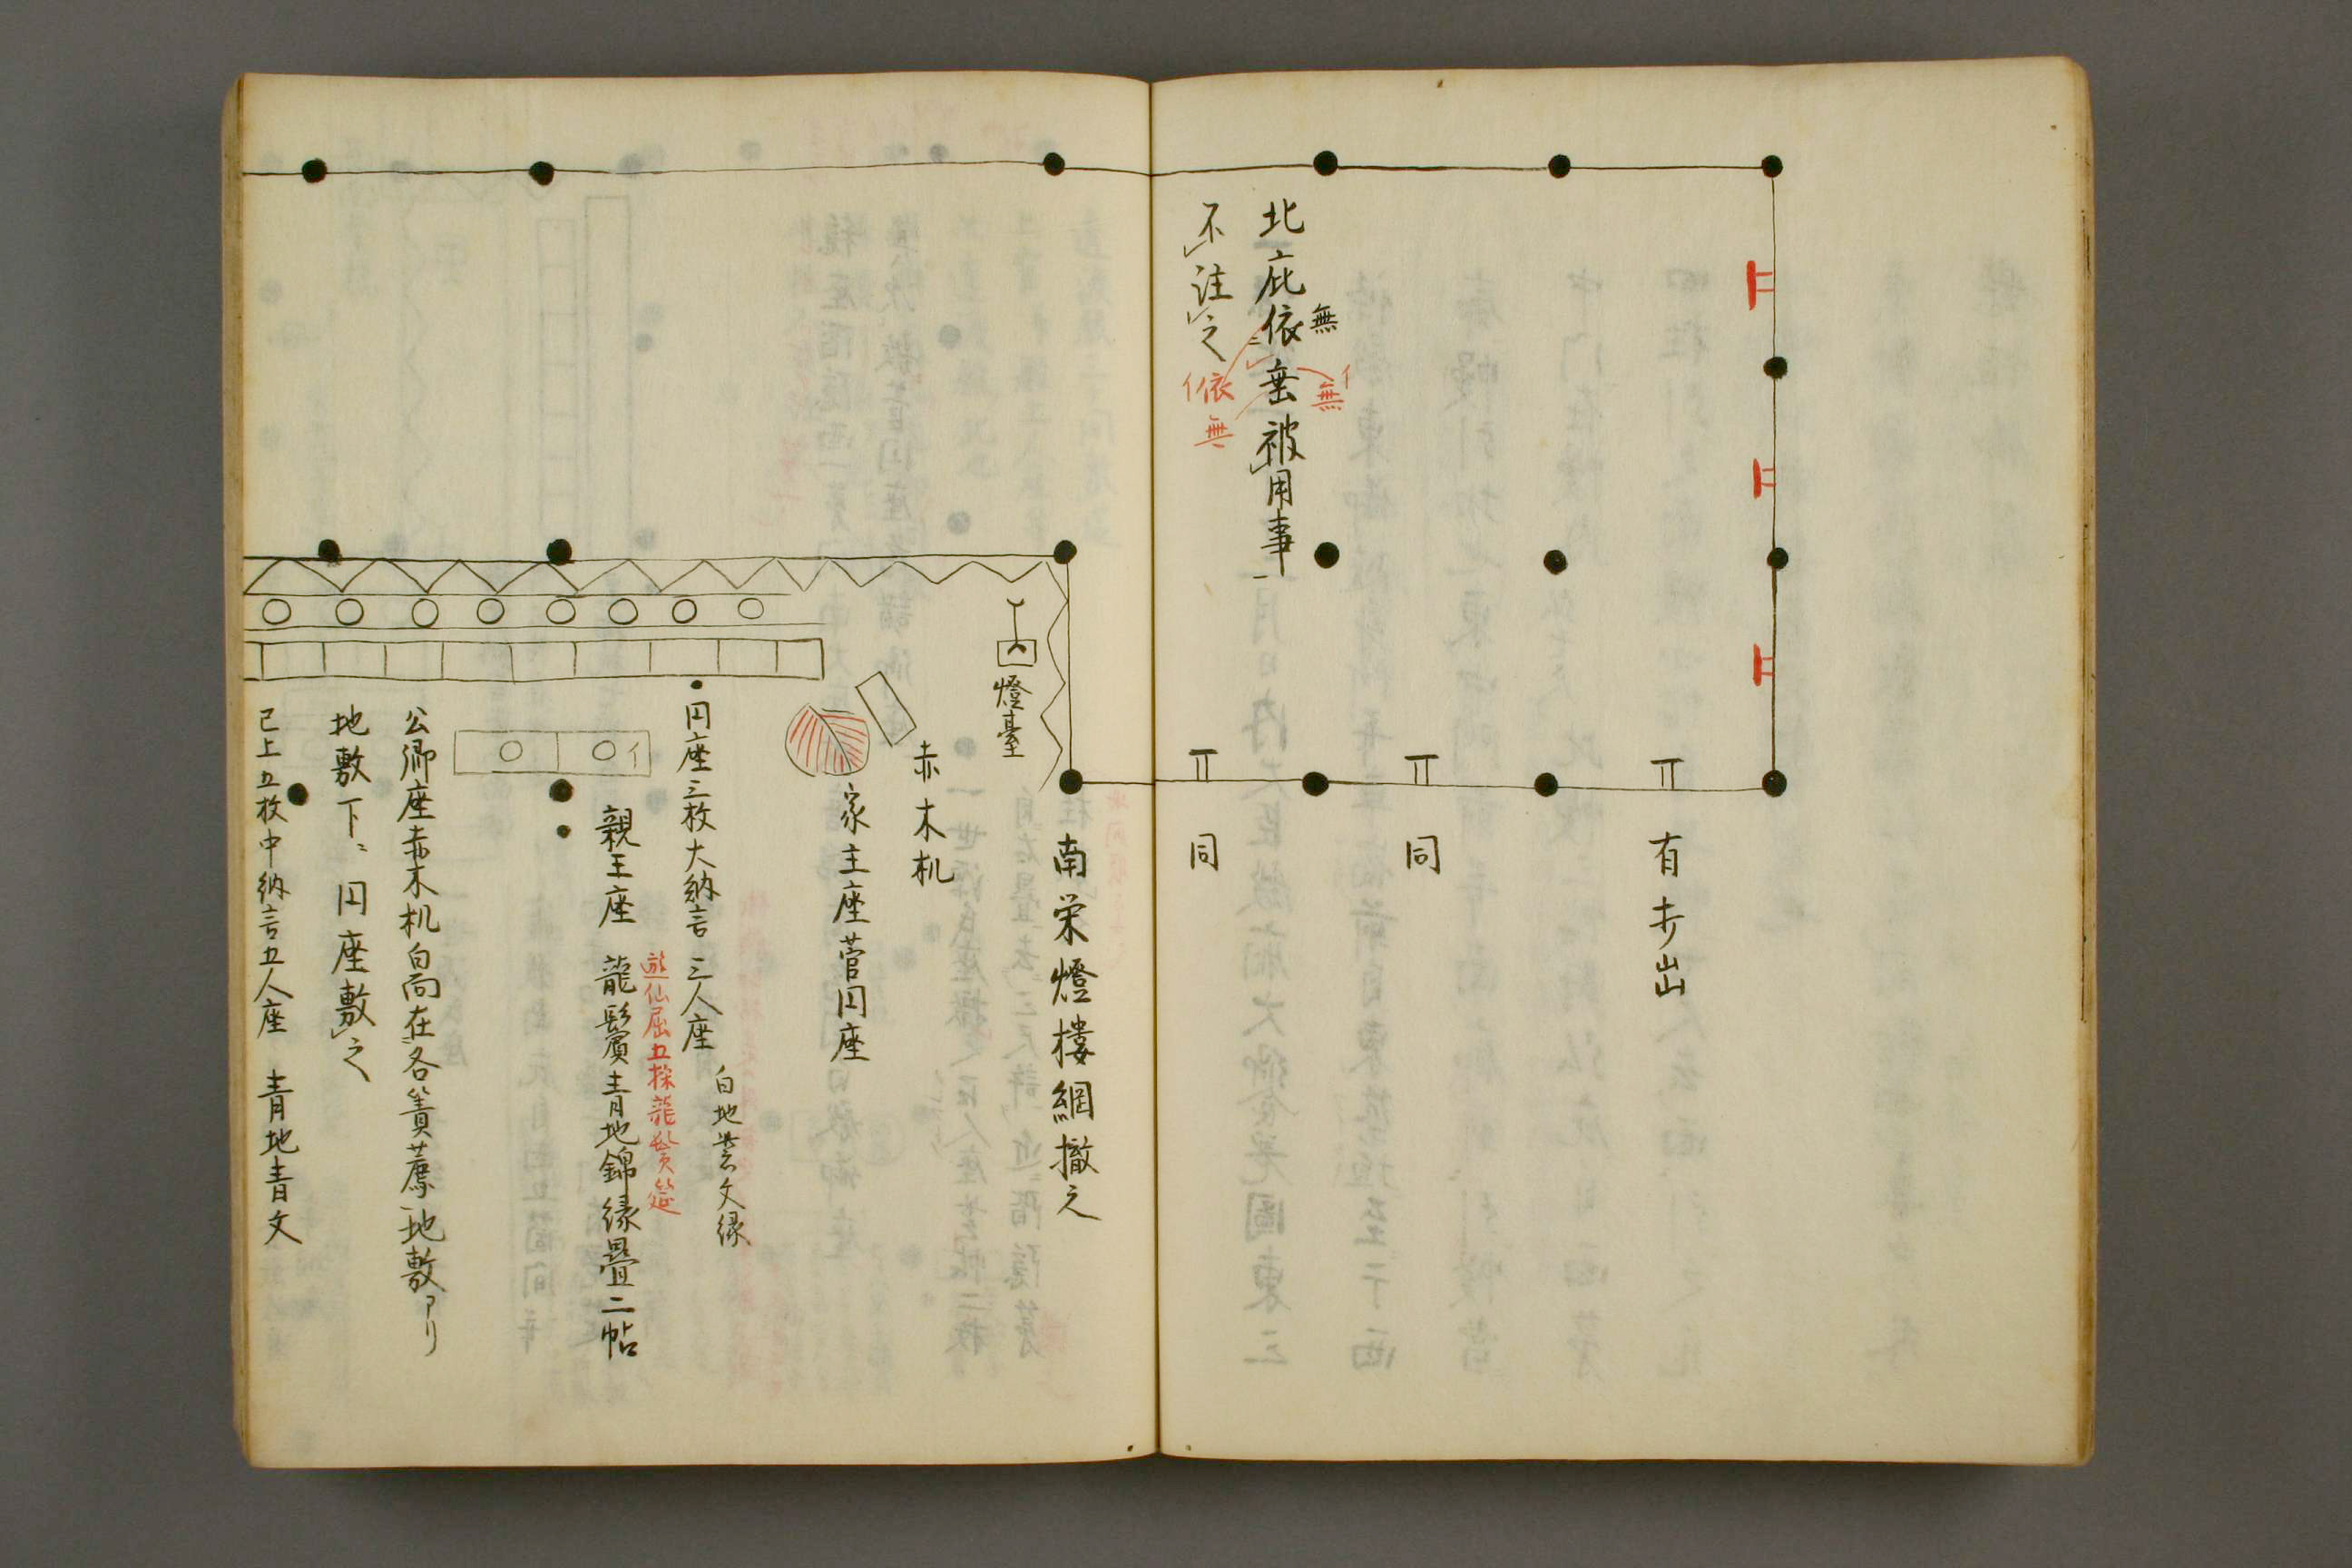 北庇依無垂被用事
イ無
不注之
イ依無
有歩出
同
同
南栄燈樓綱撤之
燈臺
赤木机
家主座菅円座
円座三枚大納言三人座
白地紫文縁
親王座　龍鬢青地錦縁畳二帖
イ
公卿座赤木机白両在各簀薦地敷アリ
地敷下ニ円座敷之
已上五枚中納言五人座　青地青文